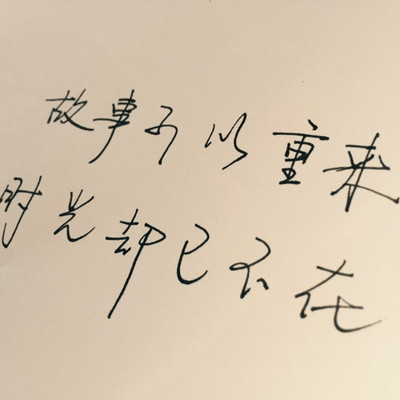 故事可以重来
时光却已不在